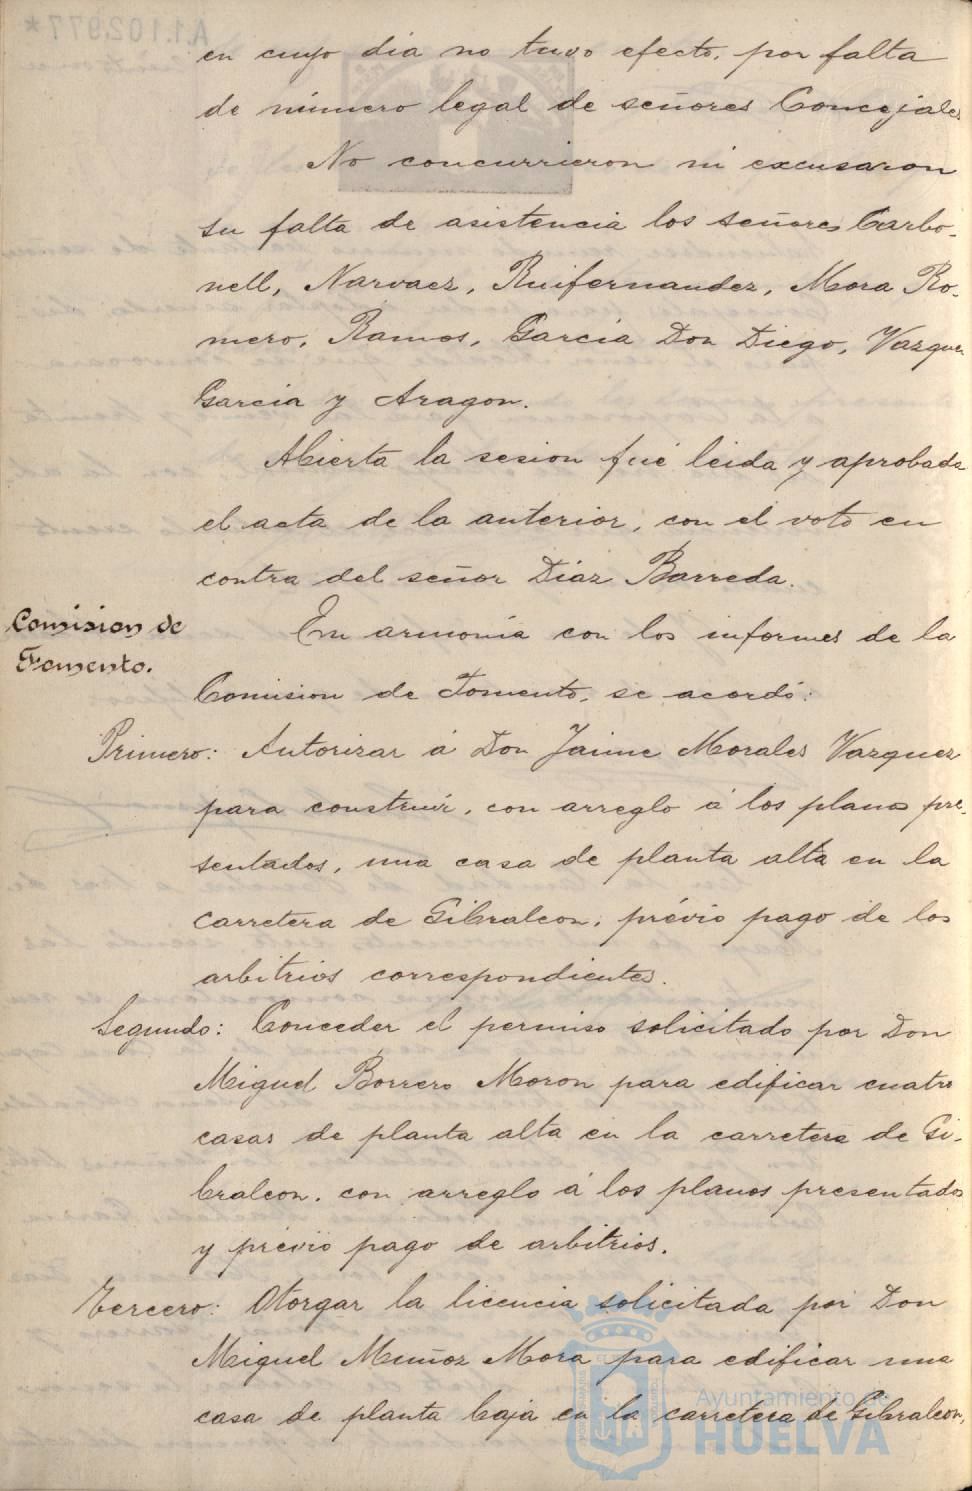 en cuyo dia no tuvo efecto, por falta
de número legal de señores Concejales
No concurrieron ni excusaron
su falta de asistencia los señores Carbo-
nell, Narvaez, Ruifernandez, Mora Ro-
mero, Ramos, Garcia Don Diego, Vazquez
Garcia y Aragon.
Abierta la sesion fué leida y aprobada
el acta de la anterior, con el voto en
contra del señor Diaz Barreda.
Comision de
Fomento.
En armonía con los informes de la
Comision de Fomento, se acordó:
Primero: Autorizar á Don Jaime Morales Vazquez
para construir, con arreglo á los planos pre-
sentados, una casa de planta alta en la
carretera de Gibraleon, prévio pago de los
arbitrios correspondientes.
Segundo: Conceder el permiso solicitado por Don
Miguel Borrero Moron para edificar cuatro
casas de planta alta en la carretera de Gi-
braleon, con arreglo á los planos presentados
y prévio pago de arbitrios.
Tercero: Otorgar la licencia solicitada por Don
Miguel Muñoz Mora para edificar una
casa de planta baja en la carretera de Gibraleon,
Ayuntamiento de
HUELVA